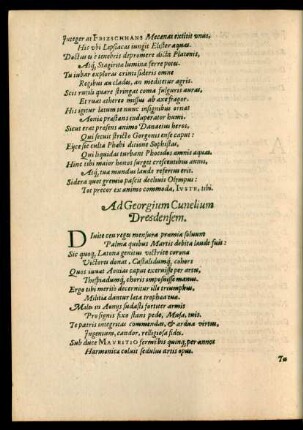 Integer at FRIESCHMANS Mecœnas extitit vnus,
Hic vbi Lipsiacas iungit Elister aquas.
Doctus è tenebris depromere dicta Platonis,
Atq́; Stagiritæ lumina ferre
Tu iubar exploras crinis sideris omne
Regibus an clades, an mediteris agris.
Scis rutili quare stringat coma fulguris auras,
Et ruat æthereo missus ab axe fragor.
His igitur latum se nunc insignibus ornat
Aonio præstans induperator humi.
Sicut erat præsens animo Danaeius heros,
Qui secuit stricto Gorgonis ense caput:
Eyce sic culta Phœbi ditione Sophistas,
Qui liquidas turbant Phocidos amnis aquas.
Hinc tibi maior honos surget crescentibus annis,
Atq́; tua mundus laude refertus erit.
Sidera quot gremio pascit decliuis Olympus:
Tot precor ex animo commoda, IVSTE, tibi.
Ad Georgium Cunelium
Dresdensem.
Diuite ceu reges mensura præmia soluunt
Palma quibus Martis debita laude fuit:
Sic quoq́; Latona genitus victrice corona
Victores donat, Castalidumq́; cohors
Quos iuuat Aonias caput exornasse per artes,
Thespiadumq́; choris imposuisse manus.
Ergo tibi meritò decernitur ille triumphus,
Militia dantur læta trophæa tuæ.
Malo tu Aonys sudasti fortiter armis
Pro signis fixo stans pede, Musa, tuis.
Te patris integritas commendat, & ardua virtus,
Ingenium, candor, relligiosa fides.
Sub duce MAVRITIO fermè bis quinq́; per annos
Harmonicæ coluit sedulus artis opus.
Te